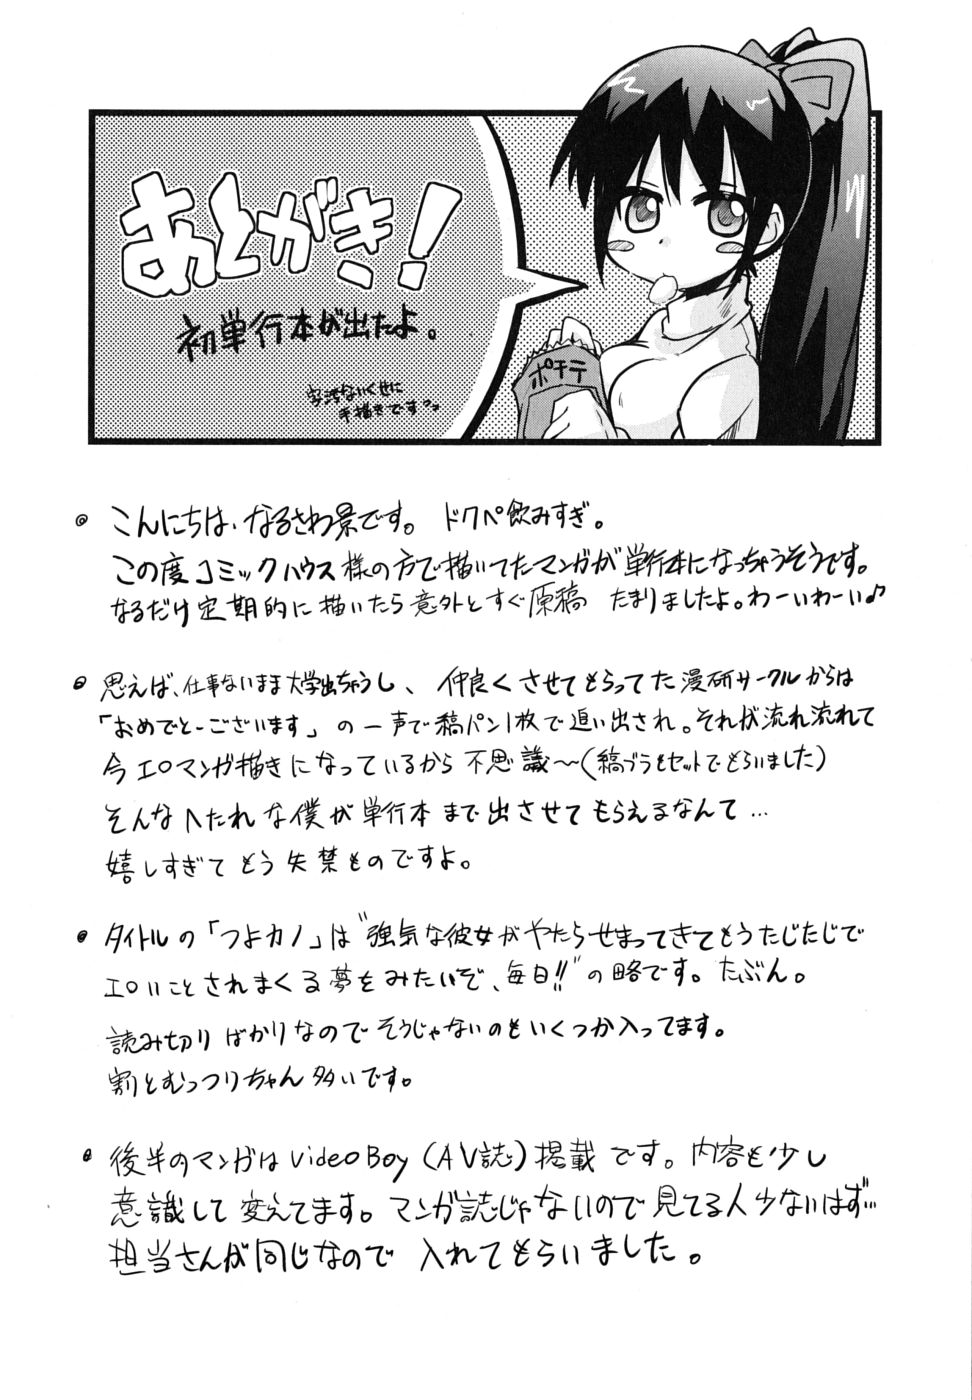 あとがき!
初単行本が出たよ。
字汚ないくせに
手描きですヨっ
ポテチ
こんにちは、なるさわ景です。 ドクペ飲みすぎ。
この度コミックハウス様の方で描いてたマンガが単行本になっちゃうそうです。
なるだけ定期的に描いたら意外とすぐ原稿 たまりましたよ。わーいわーい♪
思えば、仕事ないまま大学出ちゃうし、仲良くさせてもらってた漫研サークルからは
「おめでとーございます」の一声で縞パン1枚で追い出され。それ以来流れ流れて
今エロマンガ描きになっているから不思議〜(縞ブラもセットでもらいました)
そんなヘたれな僕が単行本まで出させてもらえるなんて…
嬉しすぎてもう失禁ものですよ。
タイトルの「つよカノ」は"強気な彼女がやたらせまってきてもうたじたじで
エロいことされまくる夢をみたいぞ、毎日!!"の略です。たぶん。
読み切りばかりなのでそうじゃないのもいくつか入ってます。
割とむっつりちゃん多いです。
後半のマンガはvideo Boy(AV誌)掲載です。内容も少し
意識して変えてます。マンガ誌じゃないので見てる人少ないはず…
担当さんが同じなので入れてもらいました。